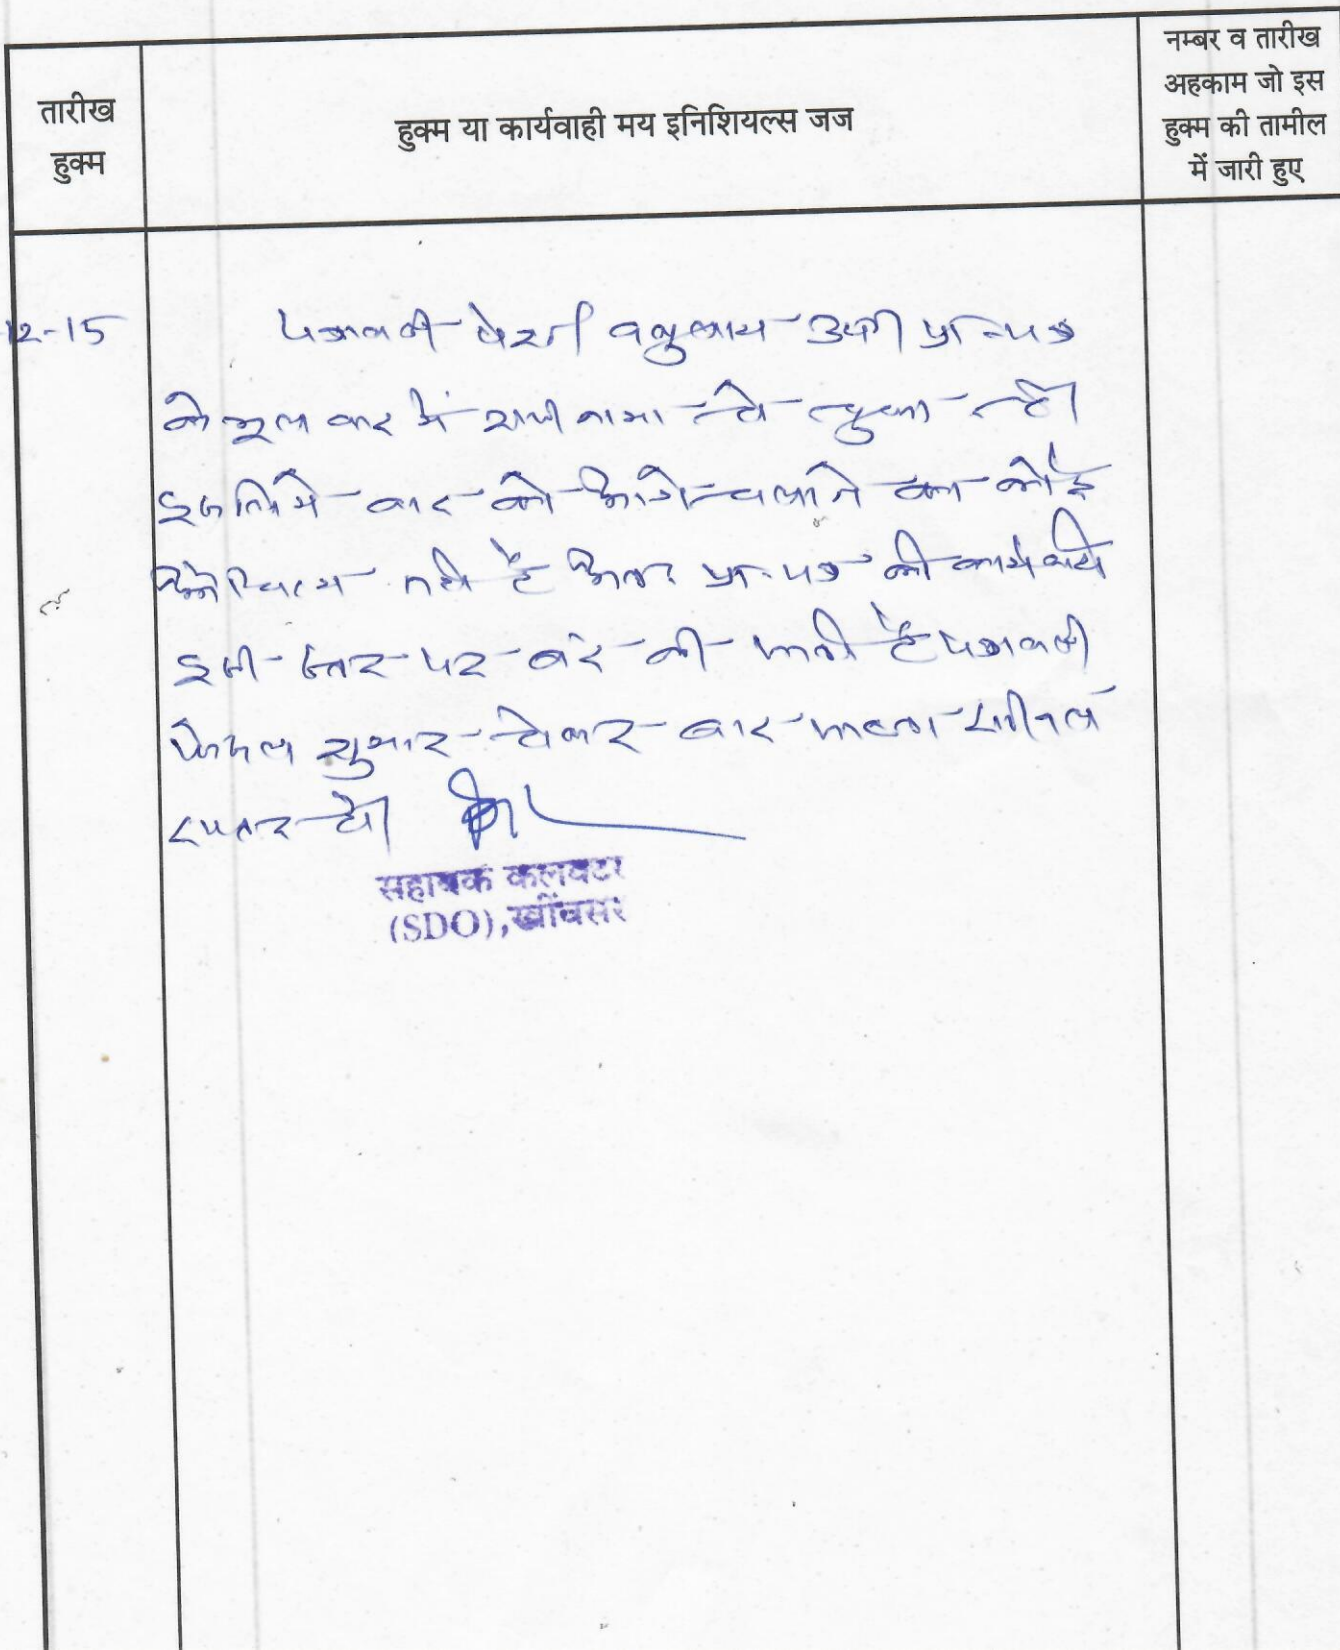 तारीख
हुक्म
हुक्म या कार्यवाही मय इनिशियल्स जज
नम्बर व तारीख
अहकाम जो इस
हुक्म की तामील
में जारी हुए
12-15
पत्रावली पेश। वकुलाय उप। प्रा-पत्र
के मूल वाद में राजीनामा हो चुका है।
इसलिये वाद को आगे चलाने का कोई
औचित्य नही है अतः प्रा-पत्र की कार्यवाही
इसी स्तर पर बंद की जाती है पत्रावली
फैसल शुमार होकर बाद दाखिल
दफ्तर हो।
सहायक कलक्टर
(SDO), खींवसर